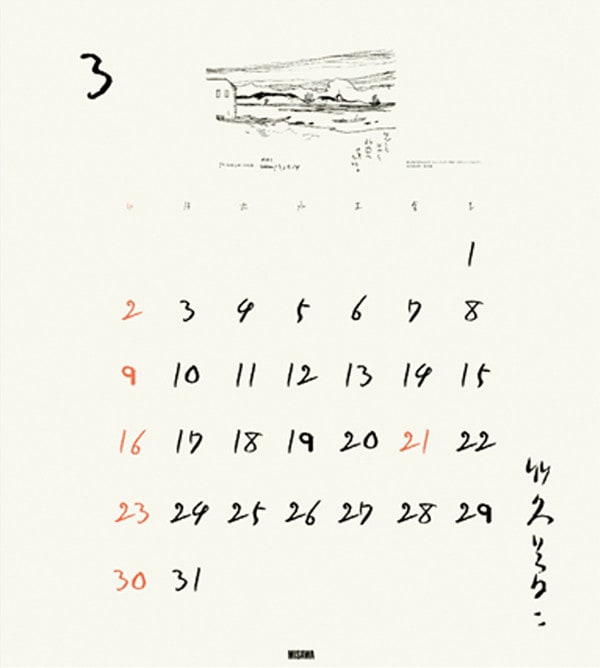 3
日 月 火 水 木 金 土
1
2 3 4 5 6 7 8
9 10 11 12 13 14 15
16 17 18 19 20 21 22
23 24 25 26 27 28 29
30 31
竹久夢二
MISAWA